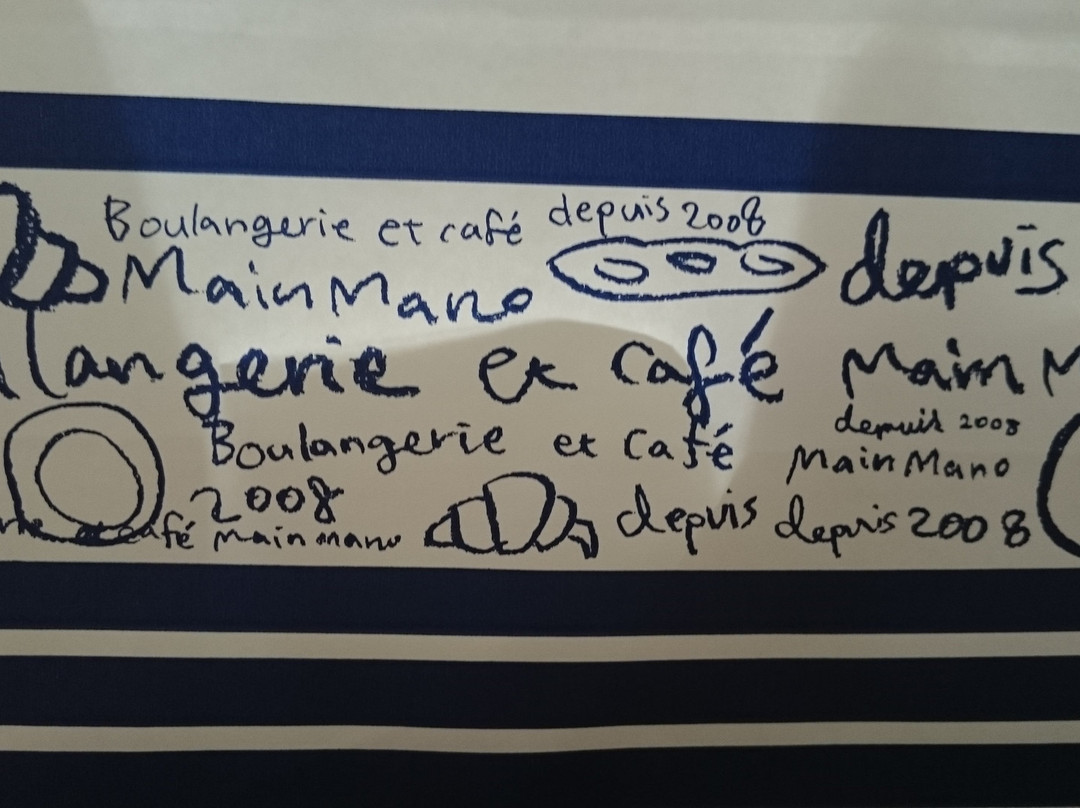 Boulangerie et café depuis 2008
MainMano
depuis
langerie et café MainM
depuis 2008
Boulangerie et café
MainMano
2008
depuis depuis 2008
café Mainmano